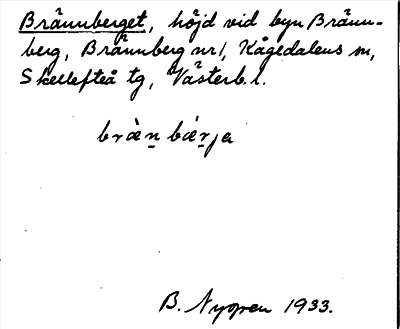 Brännberget, höjd vid byn Bränn-
berg, Brännberg nr 1, Kågedalens m,
Skellefteå tg, Västerb. l.
bræ̀n̠ bǽr̠ja
B. Nygren 1933.